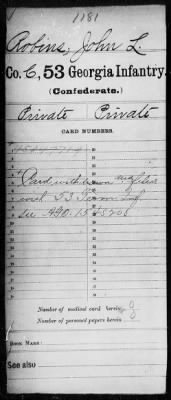 1181
Robins, John L.
Co. C, 53 Georgia Infantry.
(Confederate.)
Private Private
CARD NUMBERS.
Card withdrawn and filed
with 53 Tenn Inf
see
Number of medical cards herein 0
Number of personal papers herein 0
BOOK MARK:
See also